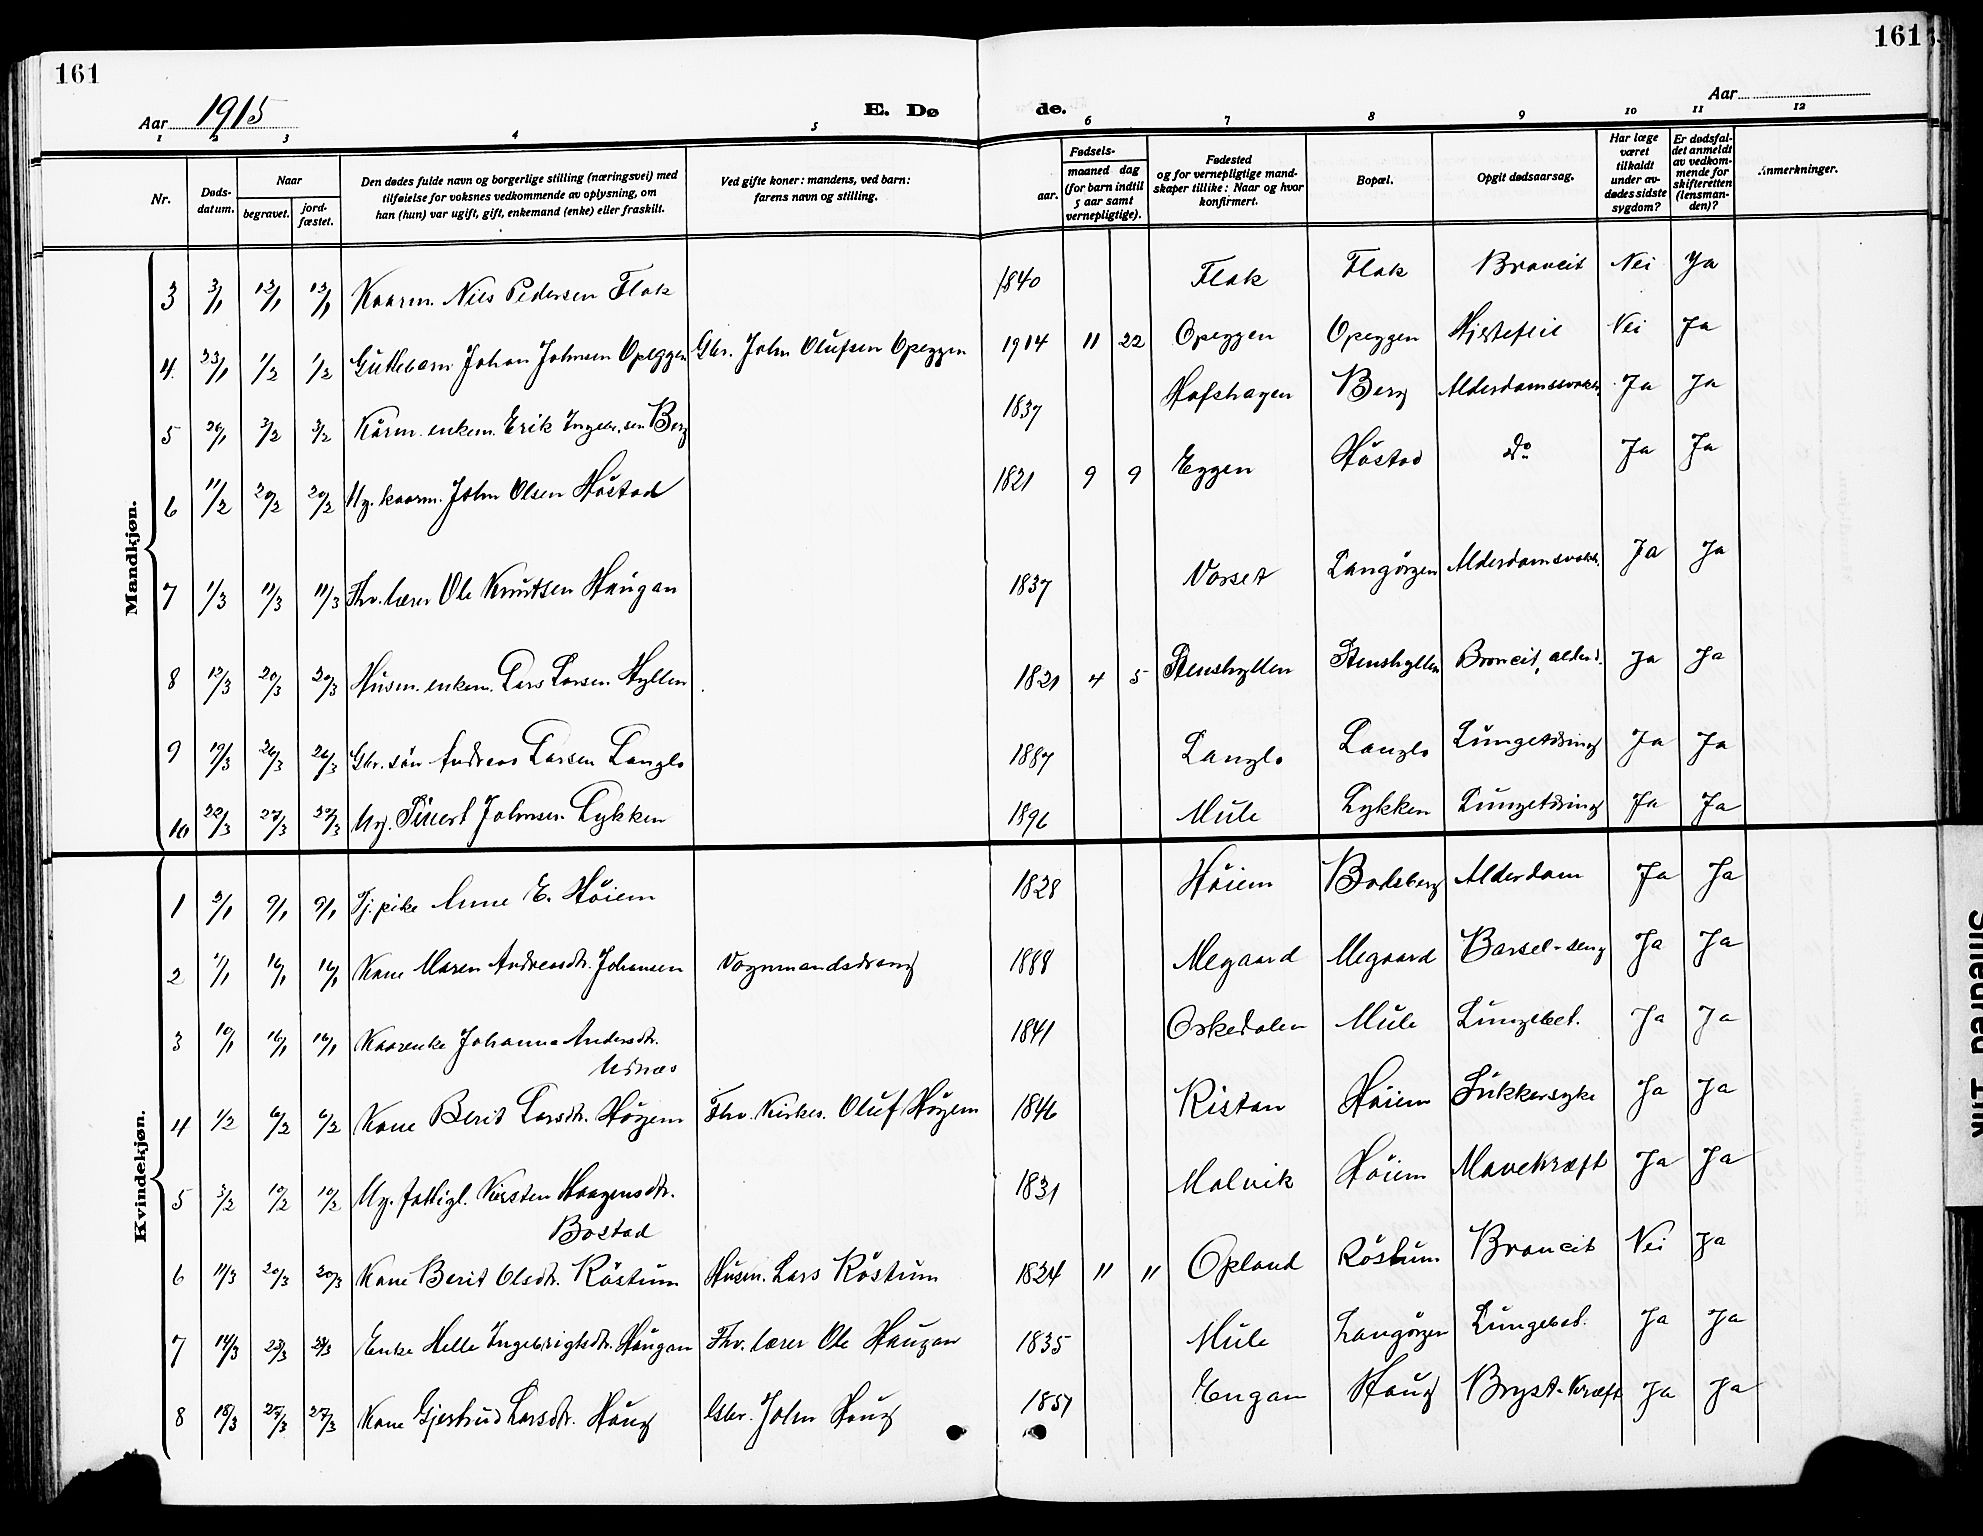 161
161
Aar 1915
E. Dø
de.
Aar
1 2 3 4 5 6 7 8 9 10 11 12
Nr.
Døds-
datum.
Naar
begravet.
jord-
fæstet.
Den dødes fulde navn og borgerlige stilling (næringsvei) med
tilføielse for voksnes vedkommende av oplysning, om
han (hun) var ugift, gift, enkemand (enke) eller fraskilt.
Ved gifte koner: mandens, ved barn:
farens navn og stilling.
Fødsels-
aar.
maaned dag
(for barn indtil
5 aar samt
vernepligtige).
Fødested
og for vernepligtige mand-
skaper tillike: Naar og hvor
konfirmert.
Bopæl.
Opgit dødsaarsag.
Har læge
været
tilkaldt
under av-
dødes sidste
sygdom?
Er dødsfal-
det anmeldt
av vedkom-
mende for
skifteretten
(lensman-
den)?
Anmerkninger.
Mandkjøn.
3 3/1 13/1 13/1 Kaarm. Nils Pedersen Flak 1840 Flak Flak Broncit Nei Ja
4. 23/1 1/2 1/2 Guttebarn Johan Johnsen Opeggen Gbr. John Olufsen Opeggen 1914 11 22 Opeggen Opeggen Hjertefeil Nei Ja
5 26/1 3/2 3/2 Kårm. enkem. Erik Ingebr.sen Berg 1837 Hofshagen Berg Alderdomssvakh. Ja Ja
6 11/2 20/2 20/2 Ug. kaarm. John Olsen Høstad 1821 9 9 Eggen Høstad do Ja Ja
7 1/3 11/3 11/3 Fhv. lærer Ole Knutsen Haugan 1837 Vorset Langørgen Alderdomsvakh. Ja Ja
8 12/3 20/3 20/3 Husm. enkem. Lars Larsen Hyllen 1821 4 5 Stenshyllen Stenshyllen Broncit, alderd. Ja Ja
9 19/3 26/3 26/3 Gbr. søn Andreas Larsen Langlo 1887 Langlo Langlo Lungetæring Ja Ja
10 22/3 27/3 27/3 Ug. Sivert Johnsen Lykken 1896 Mule Lykken Lungetæring Ja Ja
Kvindekjøn.
1 2/1 9/1 9/1 Tj. pike Anne E. Høiem 1828 Høiem Bodsberg Alderdom Ja Ja
2 7/1 16/1 16/1 Kone Maren Andreasdtr. Johansen Vognmandsdreng 1888 Megaard Megaard Barsel-seng Ja Ja
3 10/1 16/1 16/1 Kaarenke Johanna Andersdtr. 1841 Oskedalen Mule Lungebet. Ja Ja
Usnæs
4 1/2 6/2 6/2 Kone Berit Larsdtr. Høgem Fhv. Kirkes. Oluf Høgem 1846 Ristan Høiem Sukkersyke Ja Ja
5 3/2 10/2 10/2 Ug. fattigl. Kirsten Haagensdtr. 1831 Malvik Høiem Mavekræft Ja Ja
Bostad
6 11/3 20/3 20/3 Kone Berit Olsdtr. Røstum Husm. Lars Røstum 1824 11 11 Opland Røstum Broncit Nei Ja
7 14/3 23/3 23/3 Enke Helle Ingebrigtsdtr. Haugan Fhv. lærer Ole Haugan 1835 Mule Langørgen Lungebet. Ja Ja
8 18/3 27/3 27/3 Kone Gjertrud Larsdtr. Haug Gbr. John Haug 1851 Engan Haug Bryst-kræft Ja Ja